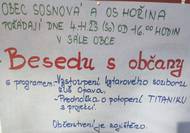 OBEC SOSNOVÁ A OS HOŽINA
POŘÁDAJÍ DNE 4.11.23 (SO) OD 16.00 HODIN
V SÁLE OBCE
Besedu s občany
s programem: - Vystoupení kytarového souboru
ZUŠ Opava.
- Přednáška o potopení TITANIKU
s projekcí.
Občerstvení je zajištěno.